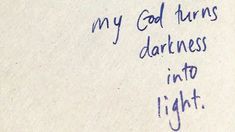 my God turns
darkness
into
light.